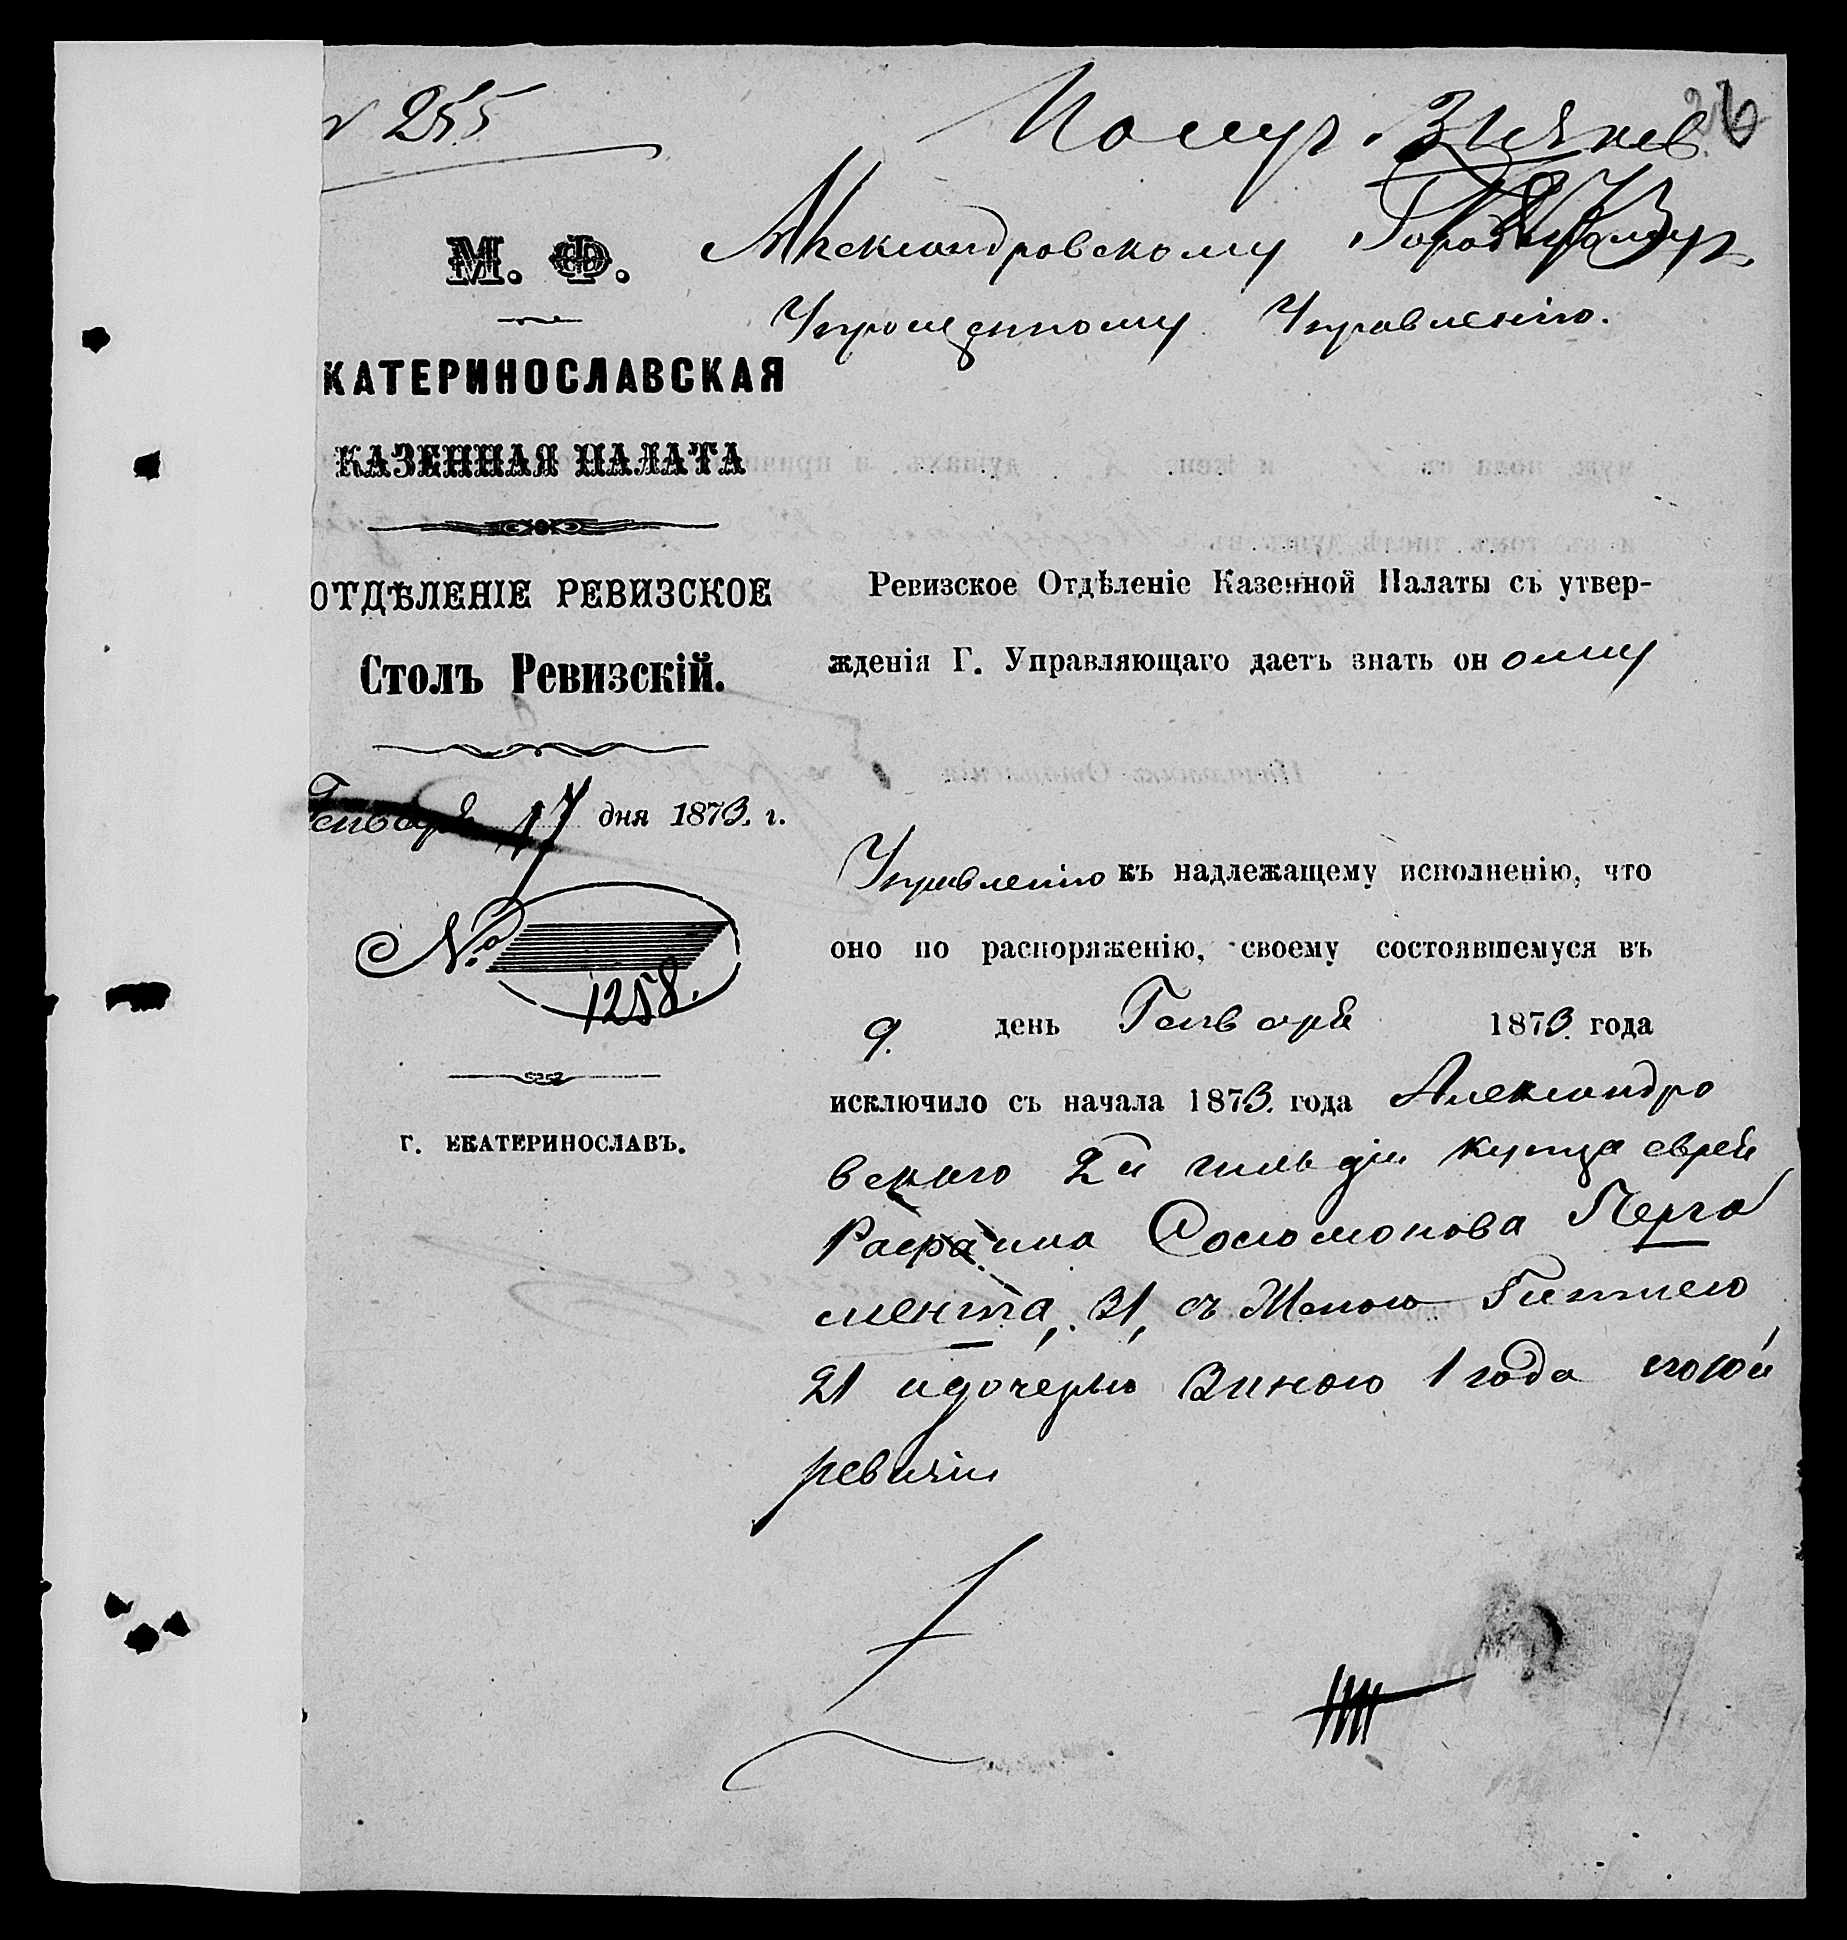 № 255
М. Ф.
КАТЕРИНОСЛАВСКАЯ
КАЗЕННАЯ ПАЛАТА
ОТДѢЛЕНІЕ РЕВИЗСКОЕ
Столъ Ревизскій.
Генваря 17 дня 1873. г.
№ 1258.
Г. ЕКАТЕРИНОСЛАВЪ.
Получ.
Александровскому
Упрощенному Управленію.
Ревизское Отдѣленіе Казенной Палаты съ утвер-
жденія Г. Управляющаго даетъ знать оному
Управленію къ надлежащему исполненію, что
оно по распоряженію, своему состоявшемуся въ
9. день Генваря 1873. года
исключило съ начала 1873. года Александро
вскаго 2й гильдіи купца еврея
Рафаила Соломонова Перга
мента, 31, съ Женою Гитлею
21 и дочерью Зиною 1 года по 10й
ревизіи